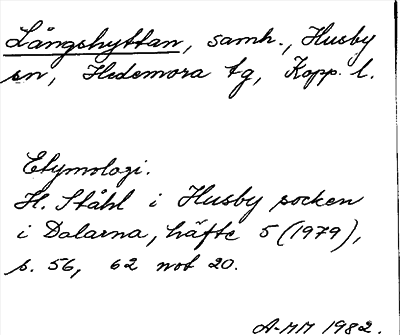 Långshyttan, samh., Husby
sn, Hedemora tg, Kopp. l.
Etymologi.
H. Ståhl i Husby socken
i Dalarna, häfte 5 (1979),
s. 56, 62 not 20.
A-MM 1982.